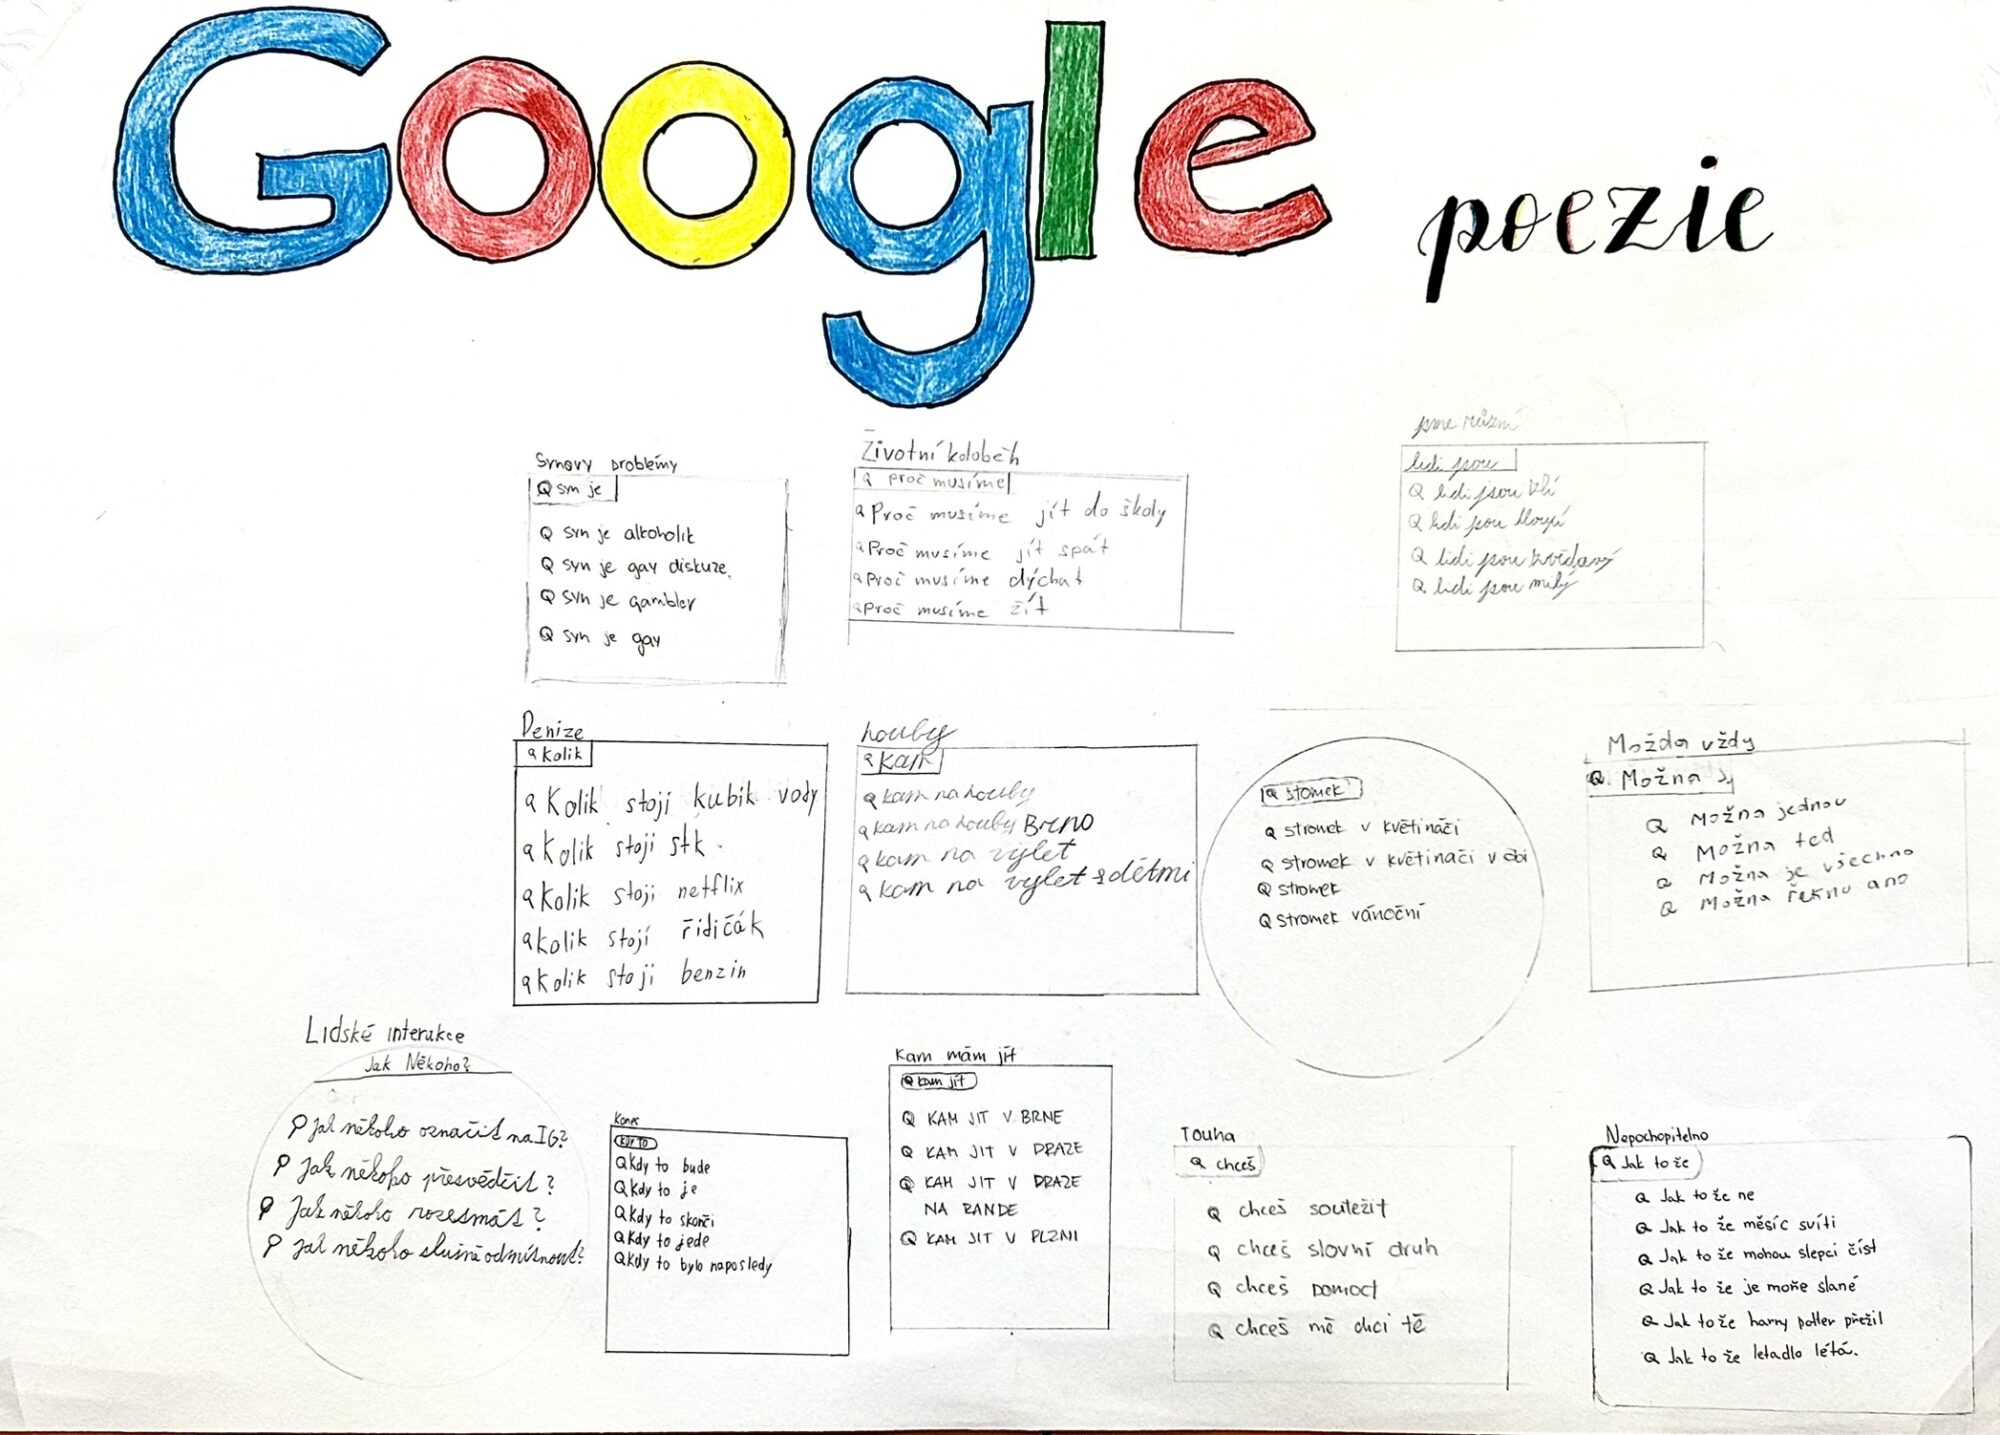 Google poezie
Synovy problémy
syn je
syn je alkoholik
syn je gay diskuze.
syn je gambler
syn je gay
Životní koloběh
Proč musíme
Proč musíme jít do školy
Proč musíme jít spát
Proč musíme dýchat
Proč musíme žít
jsme různí
lidi jsou
lidi jsou zlí
lidi jsou hloupí
lidi jsou zvědavý
lidi jsou milý
Peníze
Kolik
Kolik stojí kubík vody
Kolik stojí stk.
Kolik stojí netflix
Kolik stojí řidičák
Kolik stojí benzin
houby
Kam
kam na houby
kam na houby Brno
kam na výlet
kam na výlet s dětmi
stomek
stromek v květináči
stromek v květinači v obi
stromek
stromek vánoční
Možda vždy
Možna
Možna jednou
Možna teď
Možna je všechno
Možna řeknu ano
Lidské interakce
Jak Někoho?
Jak někoho označit na IG?
Jak někoho přesvědčit?
Jak někoho rozesmát?
Jak někoho slušně odmítnout?
Konec
KDY TO
Kdy to bude
Kdy to je
Kdy to skonči
Kdy to jede
Kdy to bylo naposledy
Kam mám jít
kam jít
KAM JIT V BRNE
KAM JIT V PRAZE
KAM JIT V PRAZE
NA RANDE
KAM JIT V PLZNI
Touha
chceš
chceš soutežit
chceš slovní druh
chceš pomoct
chceš mě chci tě
Nepochopitelno
Jak to že
Jak to že ne
Jak to že měsíc svítí
Jak to že mohou slepci číst
Jak to že je moře slané
Jak to že harry potter přežil
Jak to že letadlo létá.